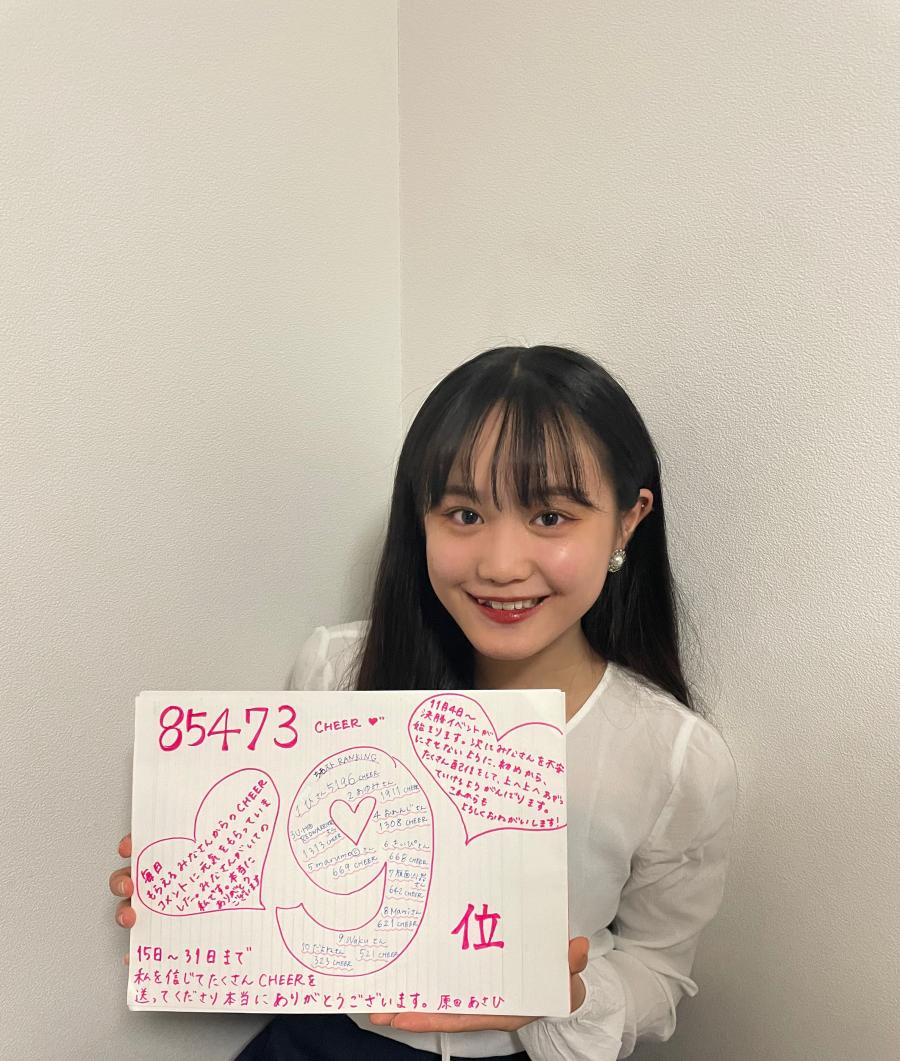 85473 CHEER ♥
11月4日〜
決勝イベントが
始まります。次はみなさんを不安
にさせないように、初めから、
たくさん配信をして、上へ上へあがっ
ていけるようがんばります。
これからも
よろしくおねがいします!
毎日
もらえるみなさんからのCHEER
コメントに元気をもらっていま
した。みなさんがいての
私です。本当に
ありがとう
ございます
RANKING
1 ぴ さん 5196 CHEER
2 あゆみさん
1911 CHEER
3
さん
1313 CHEER
4 さん
1308 CHEER
5 marumo さん
669 CHEER
6 さいぴょん
668 CHEER
7
さん
642 CHEER
8 Mamiさん
621 CHEER
9 Wakuさん
521 CHEER
10 さん
323 CHEER
9位
15日〜31日まで
私を信じてたくさんCHEERを
送ってくださり本当にありがとうございます。原田 あさひ